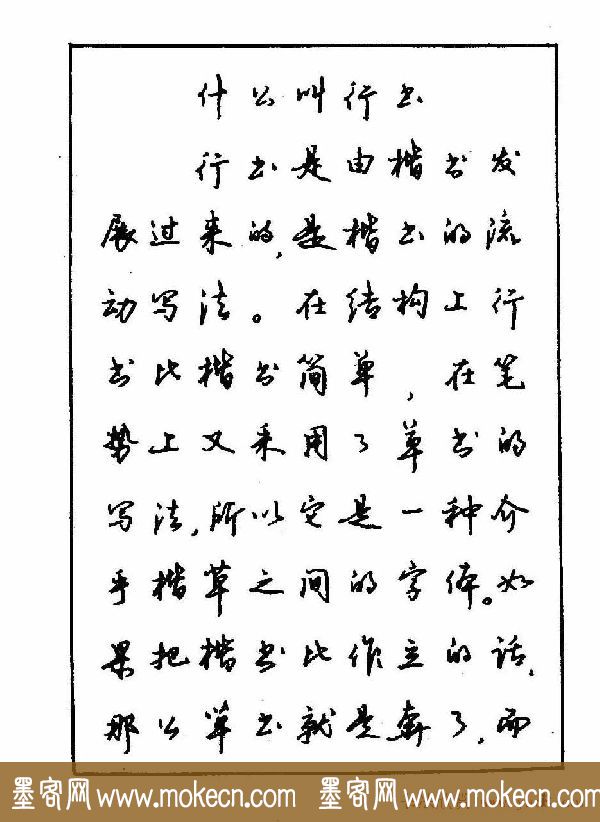 什么叫行书
行书是由楷书发
展过来的,是楷书的流
动写法。在结构上行
书比楷书简单,在笔
势上又采用了草书的
写法,所以它是一种介
乎楷草之间的字体。如
果把楷书比作立的话,
那么草书就是奔了,而
墨客网 www.mokecn.com 墨客网 www.mokecn.com